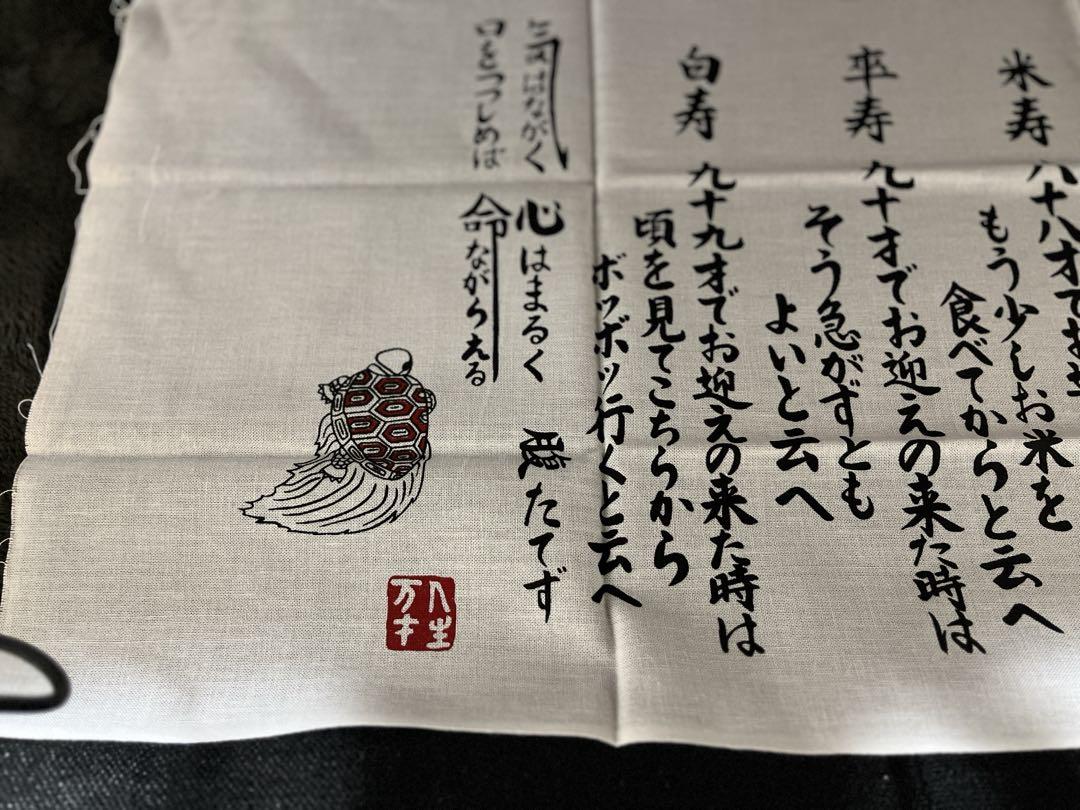 米寿 八十八才でお迎
もう少しお米を
食べてからと云へ
卒寿 九十才でお迎えの来た時は
そう急がずとも
よいと云へ
白寿 九十九才でお迎えの来た時は
頃を見てこちらから
ボツボツ行くと云へ
気はながく 心はまるく 腹たてず
口をつつしめば 命ながらえる
人生
万才